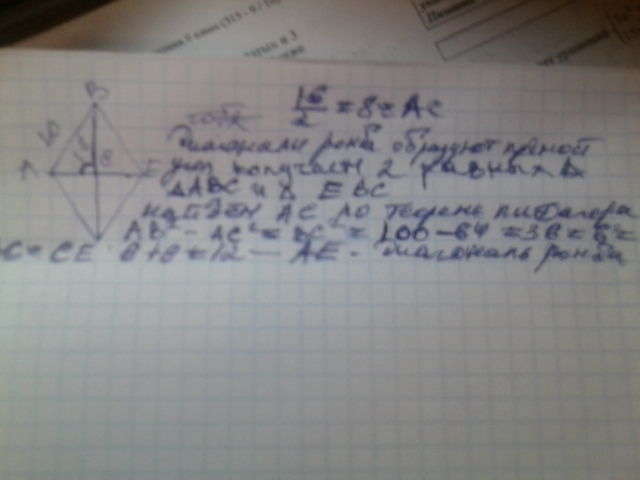 16/2 = 8 = AC
Диагонали ромба образуют прямой
угол получаем 2 равных Δ
ΔABC и Δ EBC
найдем AC по теореме пифагора
AB² - AC² = BC² = 100 - 64 = 36 = 6² =
C = CE 6+6=12 — AE - диагональ ромба
B
10
A